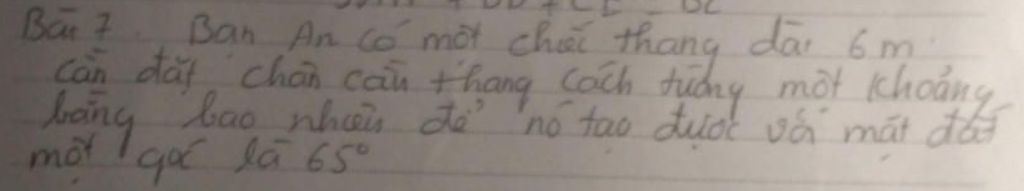 Bài 7. Bạn An có một chiếc thang dài 6m.
cần đặt chân cầu thang cách tường một khoảng
bằng bao nhiêu để nó tạo được với mặt đất
một góc là 65°